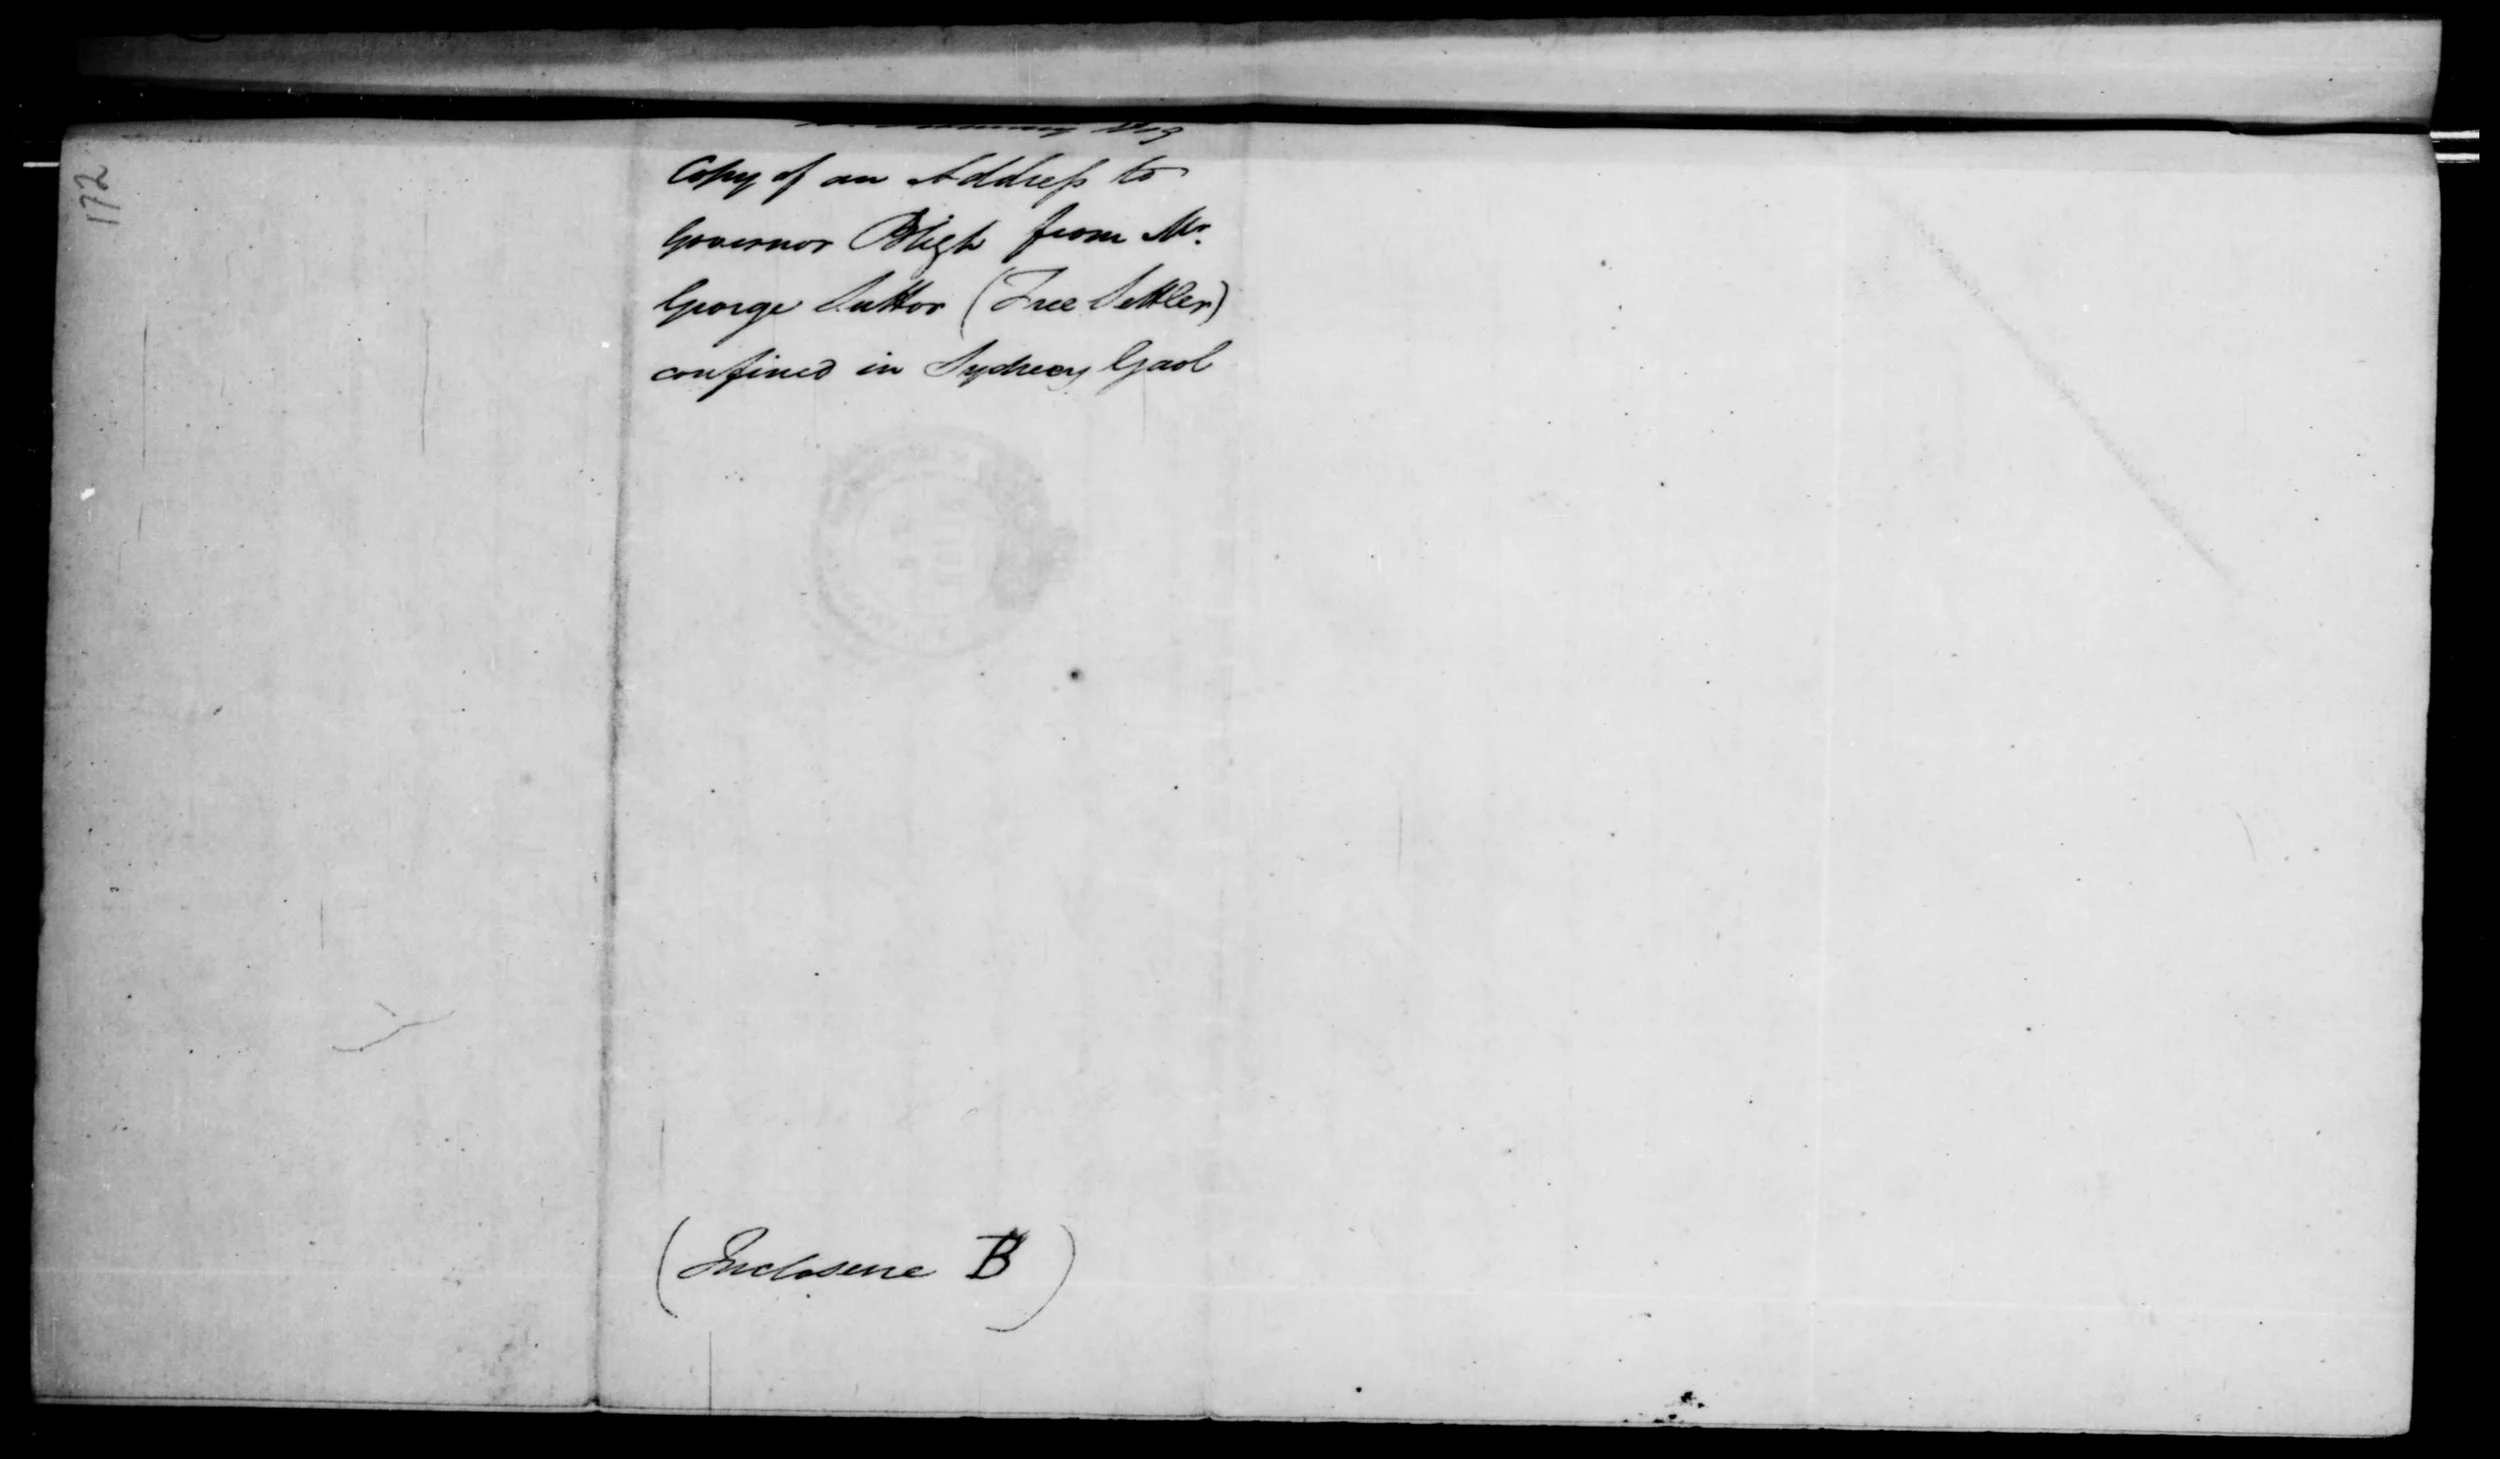 1809
Copy of an Address to
Governor Bligh from Mr.
George Suttor (Free Settler)
confined in Sydney Gaol
(Inclosure B)
172